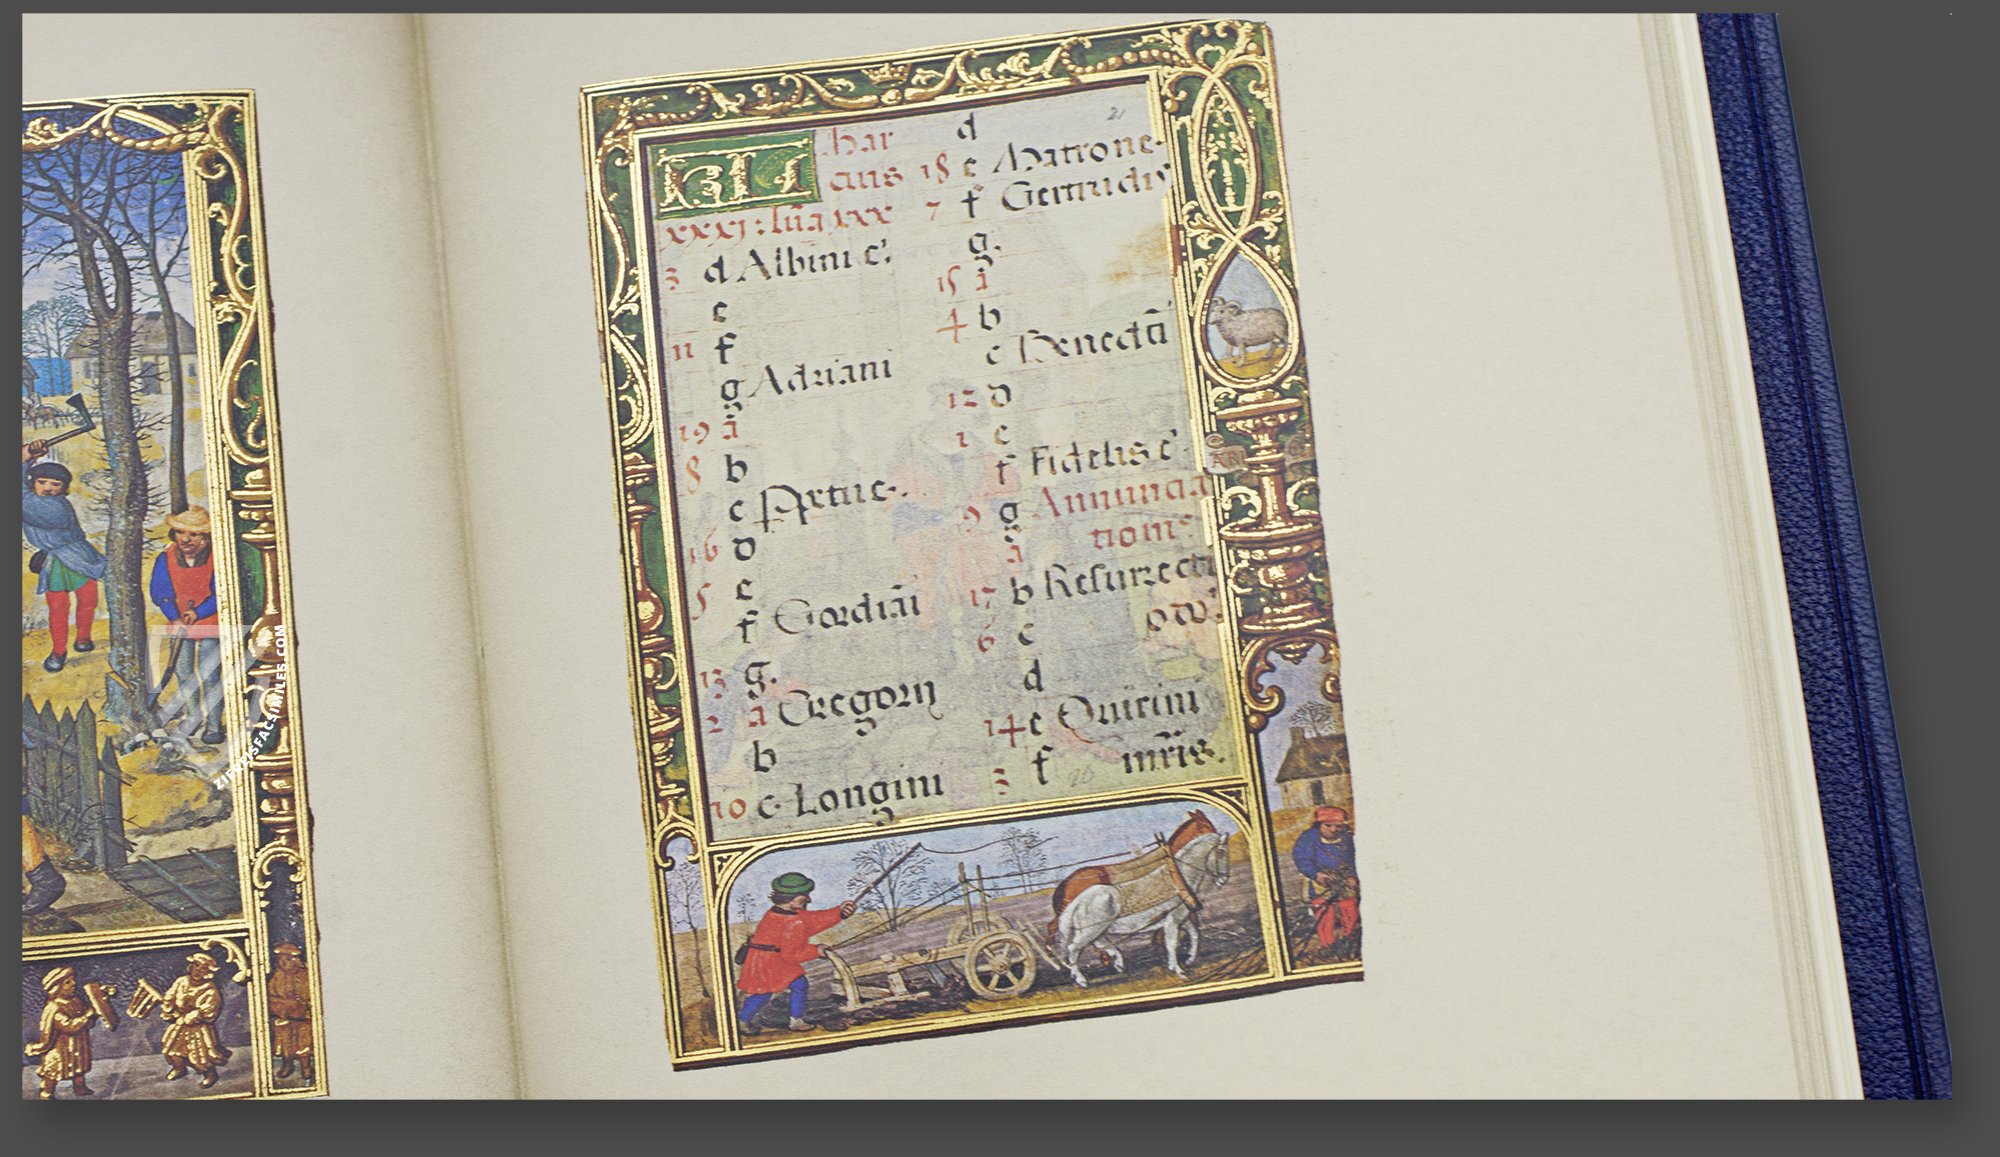 KL Mar
cius
xxxj : lūa xxx
3 d Albini e'.
e
11 f
g Adriani
19 ā
8 b
c Perpetue.
16 d
5 e
f Gordiāi
13 g.
2 a Gregorij
b
10 c. Longini
21
d
18 e Matrone.
7 f Gertrudis
g.
15 ā
4 b
c Benedcti
12 d
1 e
f Fidelis e'
9 g Annuncia
tionis
a
17 b Resurrecti
o dñi
6 c
d
14 e Quirini
3 f mr̄is.
26
ZIEREISFACSIMILES.COM